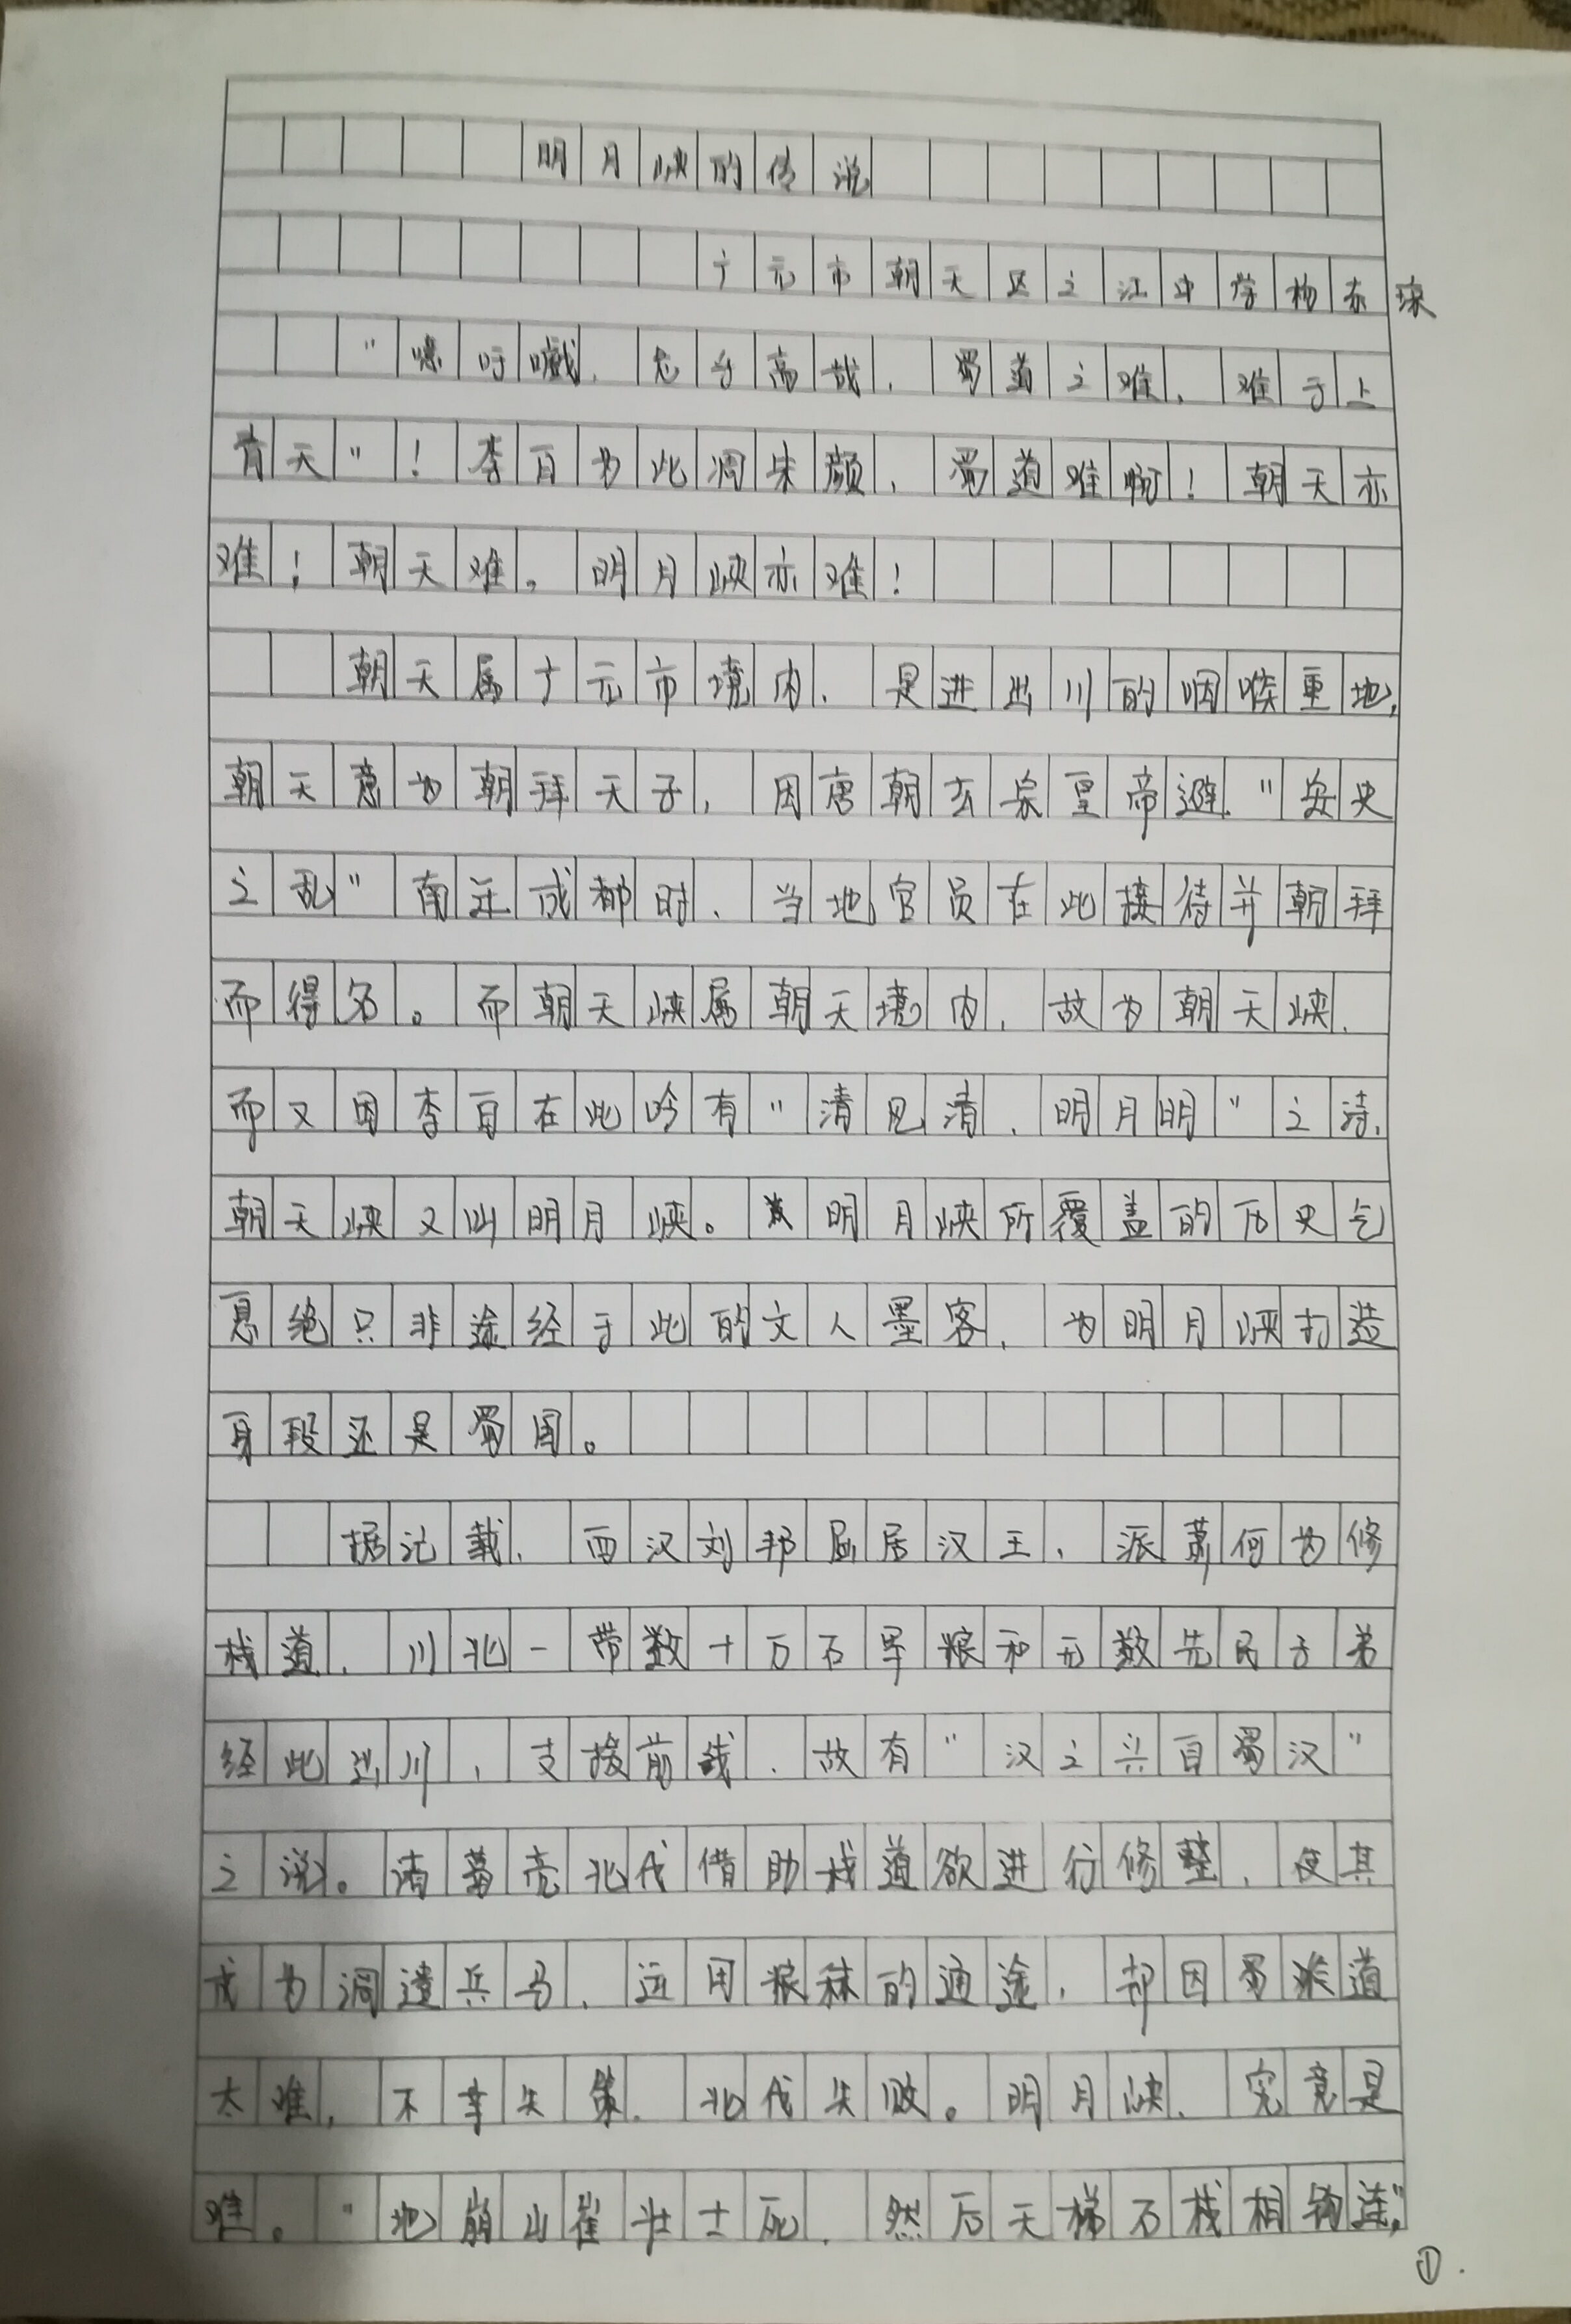 明月峡的传说
广元市朝天区之江中学杨东琼
"噫吁嚱,危乎高哉,蜀道之难,难于上
青天"!李白为此凋朱颜,蜀道难啊!朝天亦
难!朝天难。明月峡亦难!
朝天属广元市境内,是进出川的咽喉重地,
朝天意为朝拜天子,因唐朝玄宗皇帝避"安史
之乱"南迁成都时,当地官员在此接待并朝拜
而得名。而朝天峡属朝天境内,故为朝天峡,
而又因李白在此吟有"清风清,明月明"之诗,
朝天峡又叫明月峡。明月峡所覆盖的历史气
息绝只非途经于此的文人墨客,为明月峡打造
身段还是蜀国。
据记载,西汉刘邦屈居汉王,派萧何为修
栈道,川北一带数十万石军粮和无数先民子弟
经此出川,支援前线,故有"汉之兴自蜀汉"
之说。诸葛亮北伐借助栈道欲进行修整,使其
成为调遣兵马,运用粮秣的通途,却因蜀道
太难,不幸失策,北伐失败。明月峡,究竟是
难。"地崩山崔壮士死,然后天梯石栈相钩连",
①.